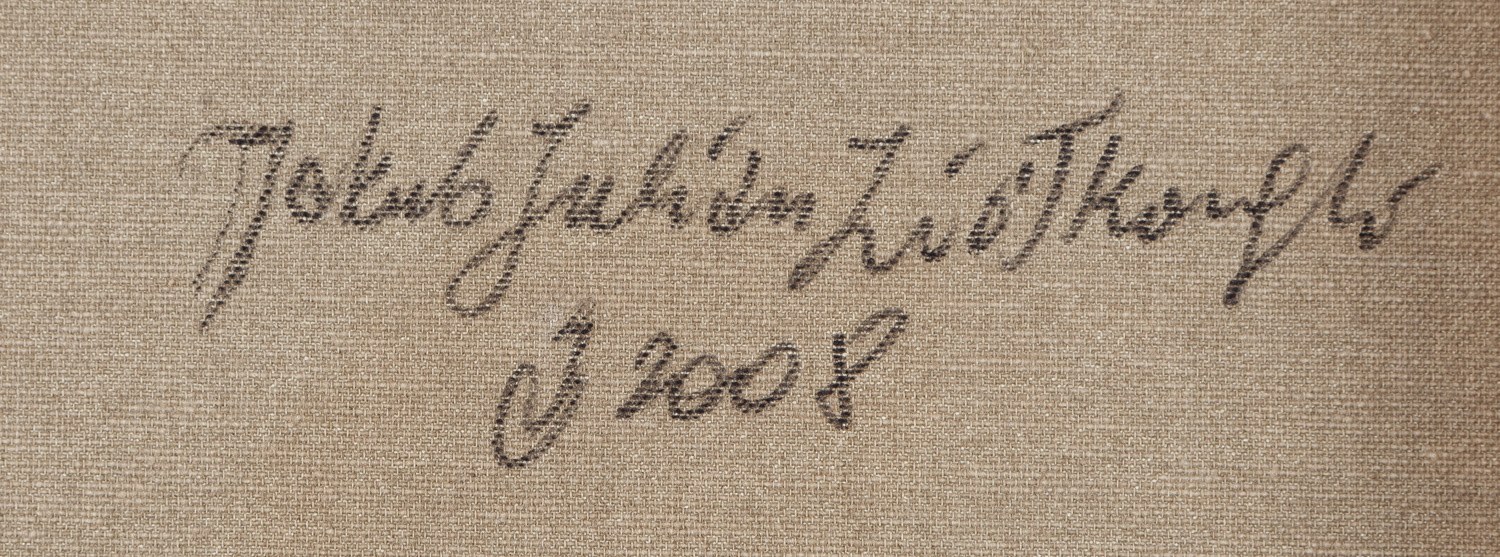 Jakub Julian Ziółkowski
I 2008